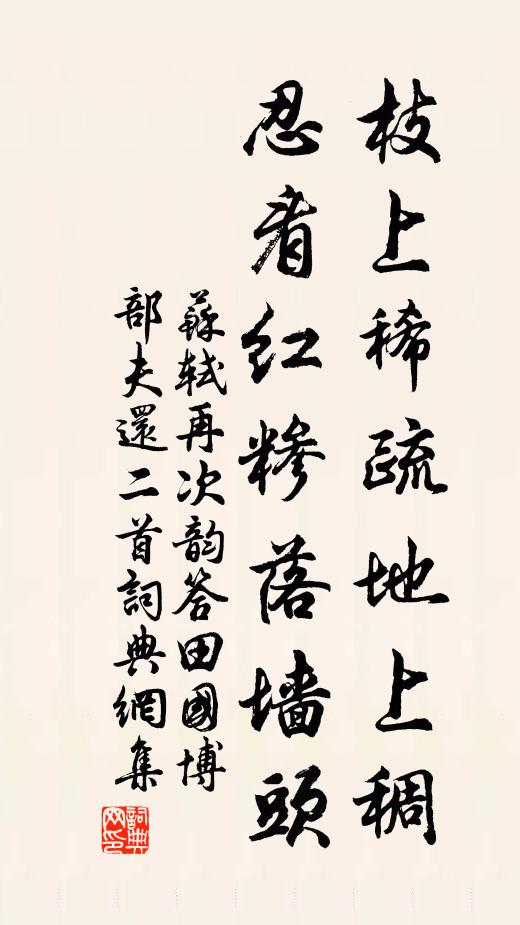 枝上稀疏地上稠
忍看红糝落墙頭
蘇軾再次韵答田國博
部夫還二首詞典網集
詞典网印